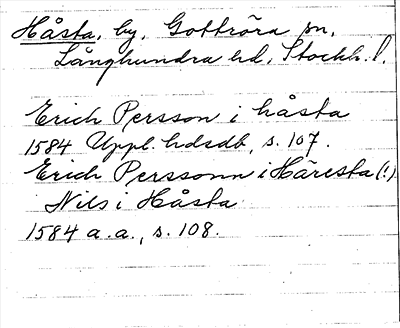 Håsta, by, Gottröra sn,
Långhundra hd, Stockh. l.
Erich Persson i håsta
1584 Uppl. hdsdb, s. 107.
Erich Perssonn i Håresta (!)
Nils i Håsta
1584 a. a., s. 108.